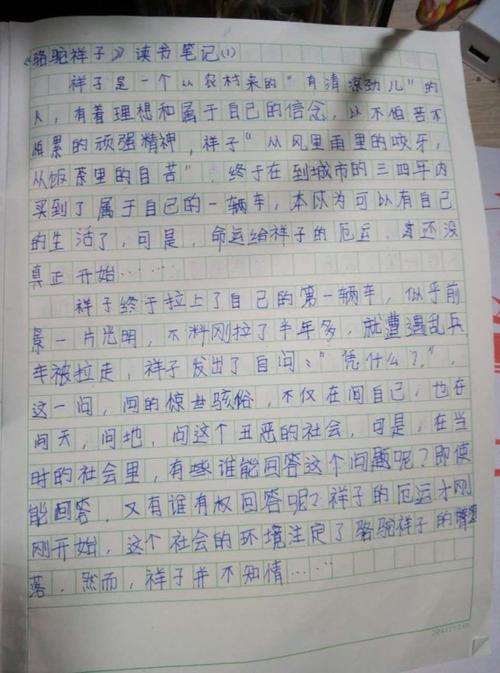 《骆驼祥子》读书笔记(1)
祥子是一个从农村来的“有清凉劲儿”的
人，有着理想和属于自己的信念，以不怕苦不
怕累的顽强精神，祥子“从风里雨里的咬牙，
从饭茶里的自苦”，终于在到城市的三四年内
买到了属于自己的一辆车，本以为可以有自己
的生活了，可是，命运给祥子的厄运，还没
真正开始……
祥子终于拉上了自己的第一辆车，似乎前
景一片光明，不料刚拉了半年多，就遭遇乱兵
车被拉走，祥子发出了自问：“凭什么？”，
这一问，问的惊世骇俗，不仅在问自己，也在
问天，问地，问这个丑恶的社会，可是，在当
时的社会里，有谁能回答这个问题呢？即使
能回答，又有谁有权回答呢？祥子的厄运才刚
刚开始，这个社会的环境注定了骆驼祥子的
落，然而，祥子并不知情……